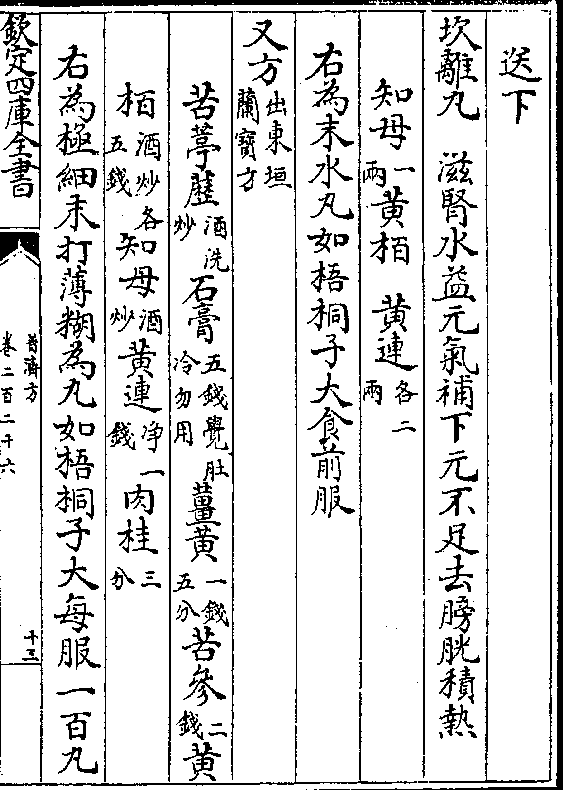 送下
坎離丸　滋腎水益元氣補下元不足去膀胱積熱
知母一兩黃栢　黃連各二兩
右為末水丸如梧桐子大食前服
又方出東垣蘭寶方
苦葶藶酒洗炒石膏五錢覺肚冷勿用薑黃一錢五分苦參二錢黃
栢酒炒各五錢知母酒炒黃連淨一錢肉桂三分
右為極細末打薄糊為丸如梧桐子大每服一百丸
欽定四庫全書
普濟方
卷二百二十六
十三